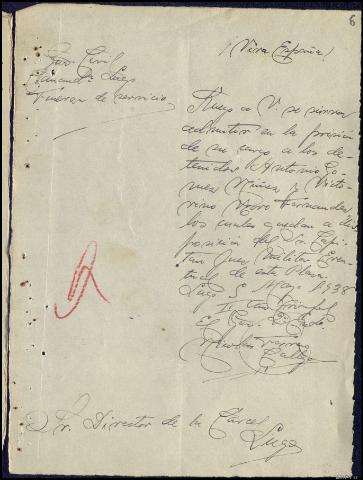 6
¡Viva España!
Civil
Lugo
Fuerza de servicio
Ruego a V. se sirva
admitir en la prisión
de su cargo a los de-
tenidos Antonio Gó-
mez Núñez y Victo-
rino Fernández
los cuales quedan a dis-
posición del Sr. Capi-
tán Juez Militar Even-
tual de esta Plaza
Lugo 5 Mayo 1938
II Año Triunfal
El
Sr. Director de la Cárcel
Lugo